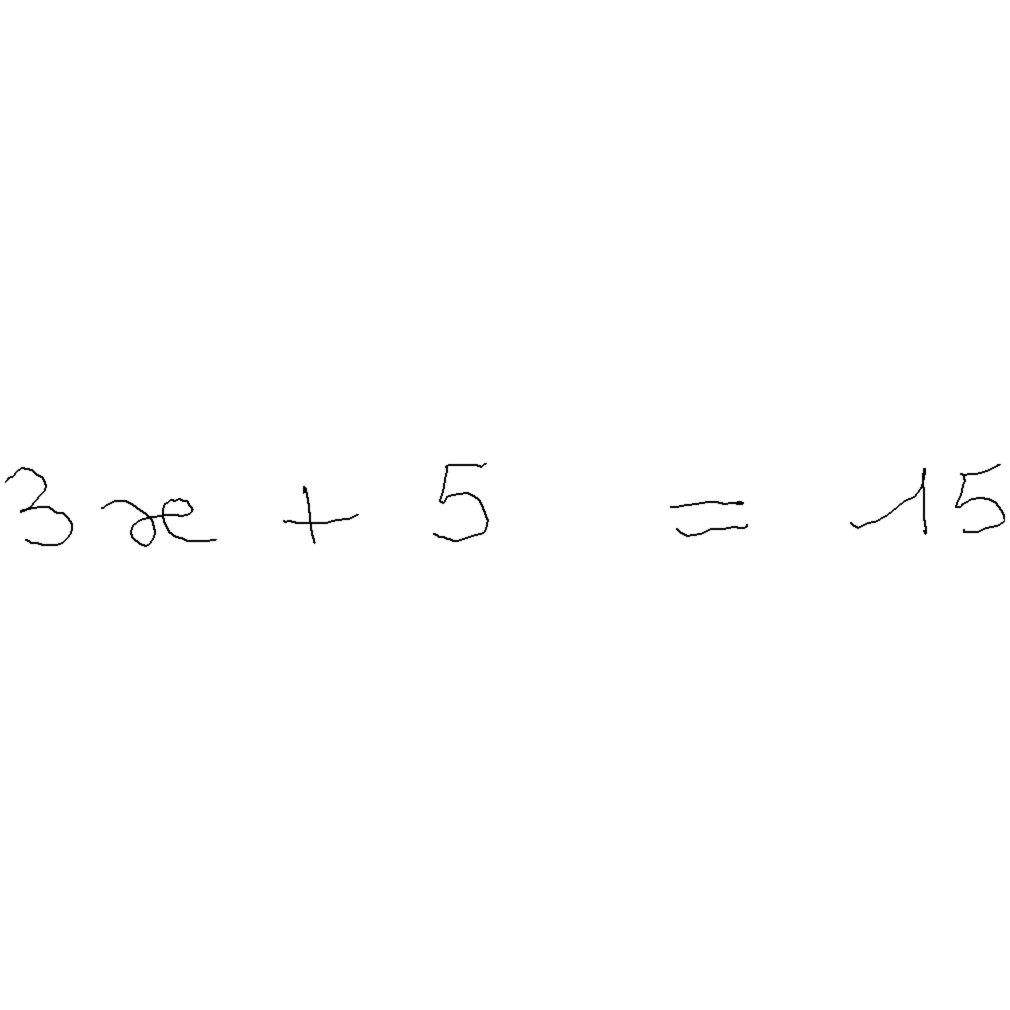 3x + 5 = 15